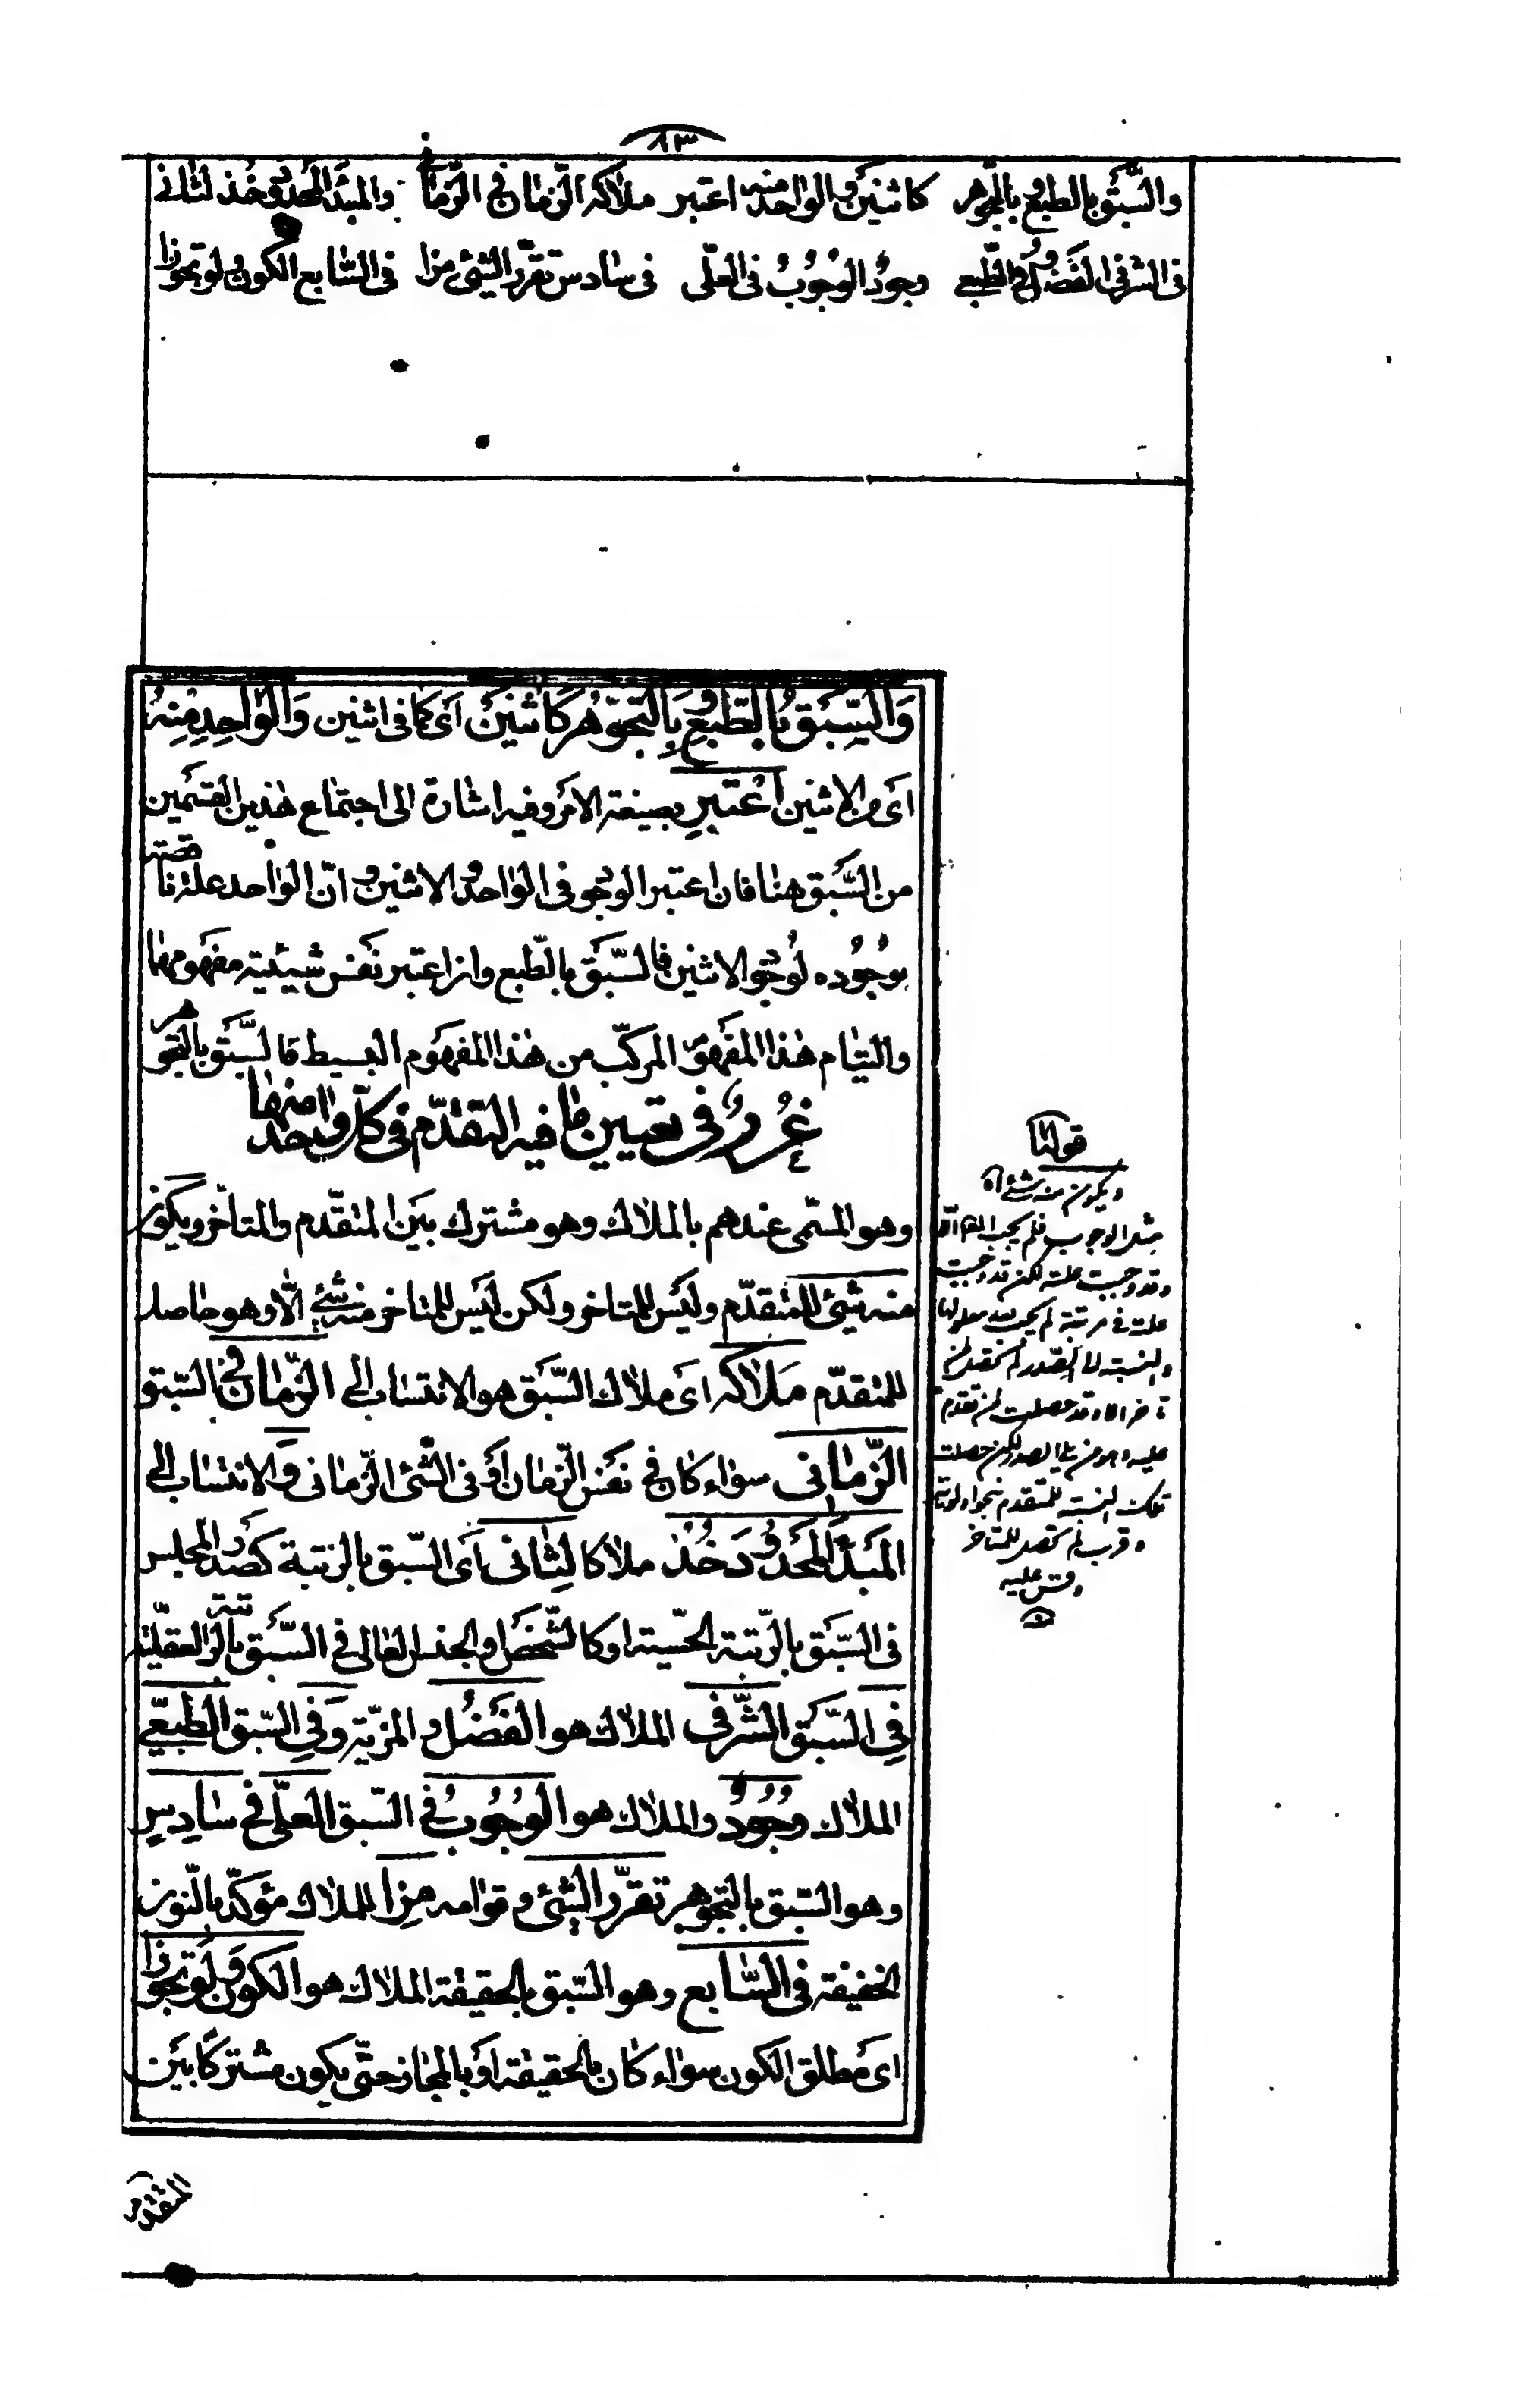 ٨٣
والسّبق بالطبع بالتّجوهر كاثنين والواحد منه اعتبر ملاكه الزمان في الزّمانى والمبدأ المحدود خذ لثانى
فى الشرفى الفضل وفى الطّبعى وجود الوجوب فى العلّى فى سادس تقرّر الشّئ مزا فى السّابع الكون ولو تجوّزا
وَالسَّبَقُ بِالطّبعِ وَبِالتّجوّهر كَاثنَين اى كما فى اثنين وَالوَاحِدِ مِنهُ
اى من الاثنين اُعْتَبِرِ بصيغة الامر وفيه اشارة الى اجتماع هذين القسمين
من السَّبق هنا فان اعتبر الوجود فى الواحد والاثنين وانّ الواحد علة ناقصة
بوجوده لوجود الاثنين فالسّبق بالطّبع وان اعتبر نفس شيئية مفهومهما
والتيام هذا المفهوم المركّب من هذا المفهوم البسيط فالسّبق بالتجوهر
غُررٌ فى تعيين ما فيه التقدّم فى كلّ واحد منها
وهو المسمّى عندهم بالملاك وهو مشترك بين المتقدّم والمتأخّر ويكون
منه شئ للمتقدّم وليس للمتاخر ولكن ليس للمتاخر منه شئ الّا وهو حاصل
للمتقدّم مَلاكه اى ملاك السّبق هو الانتساب الى الزّمان فى السّبق
الزّمانى سواء كان فى نفس الزّمان او فى الشّئ الزّمانى وَالانتساب الى
المَبدَأ المَحدُود خُذ ملاكا لِثانى اى السّبق بالرتبة كصدر المجلس
فى السّبق بالرّتبة الحسّية او كالشّخص او الجنس العالى فى السّبق بالرتبة العقليّة
فِى السّبَق الشّرفى الملاك هو الفضل والمزيّة وَفِى السّبق الطّبعى
الملاك وجودٌ والملاك هو الوُجُوبُ فى السّبق العلّى فى سادِسٍ
وهو السّبق بالتجوهر تقرّر الشّئ وقوامه مِزا للملاك مؤكّد بالنّون
الخفيفة فى السّابع وهو السّبق بالحقيقة الملاك هو الكون وَلو تجوّزا
اى مطلق الكون سواء كان بالحقيقة او بالمجاز حتّى يكون مشتركا بين
المتقدّم
قولنا
ويكون منه شئ اه
مثلا الوجوب فلم يجب المعلول الّا
وقد وجبت علته لكن قد وجبت
علة فى مرتبة لم يجب معلولها
تلك النسبة للمتقدم
لم تحصل للمتاخر
وقس عليه